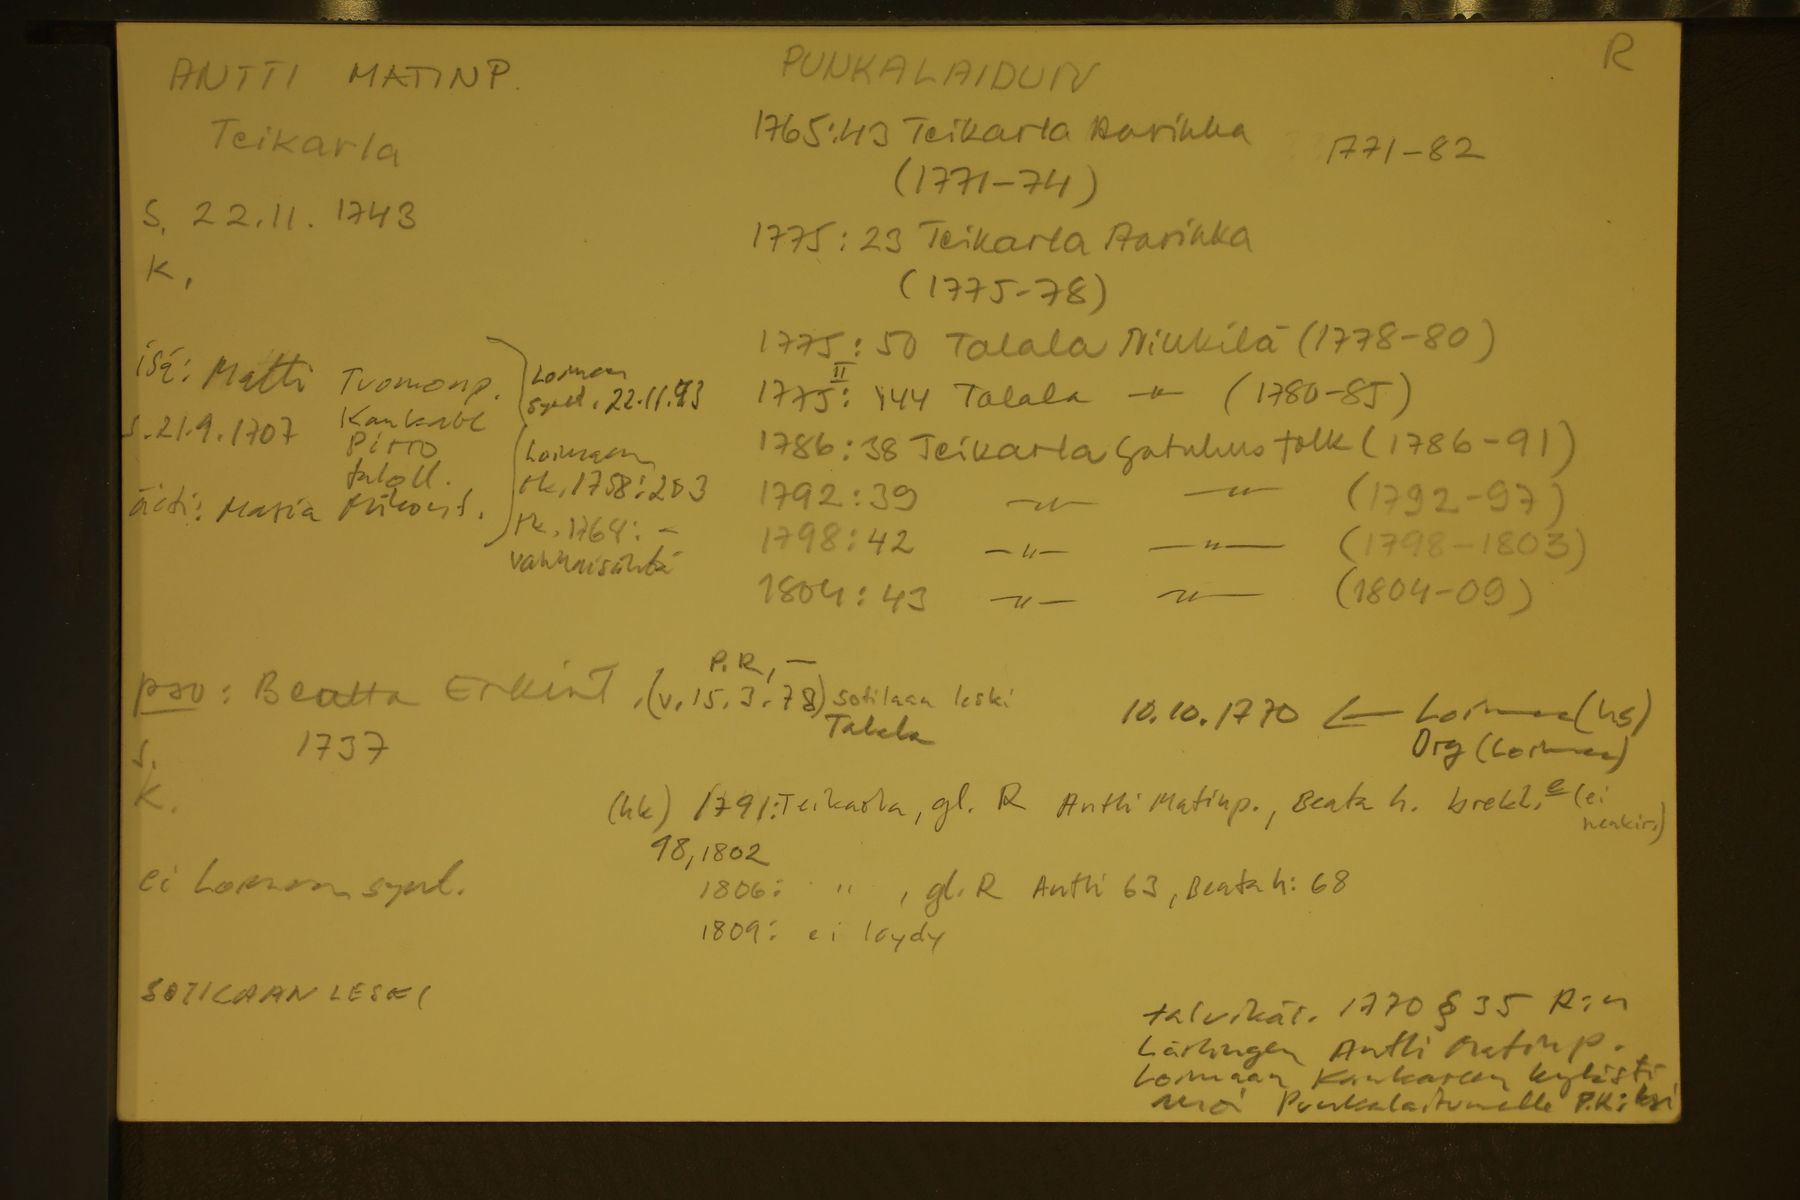 ANTTI MATINP.
Teikarla
s. 22.11. 1743
K.
isä: Matti Tuomonp.
s. 21.9.1707 Kankare
Pirto
taloll.
äiti: Maria
Loimaan
synt. 22.11.43
Loimaan
rk. 1758:203
rk. 1764: –
PUNKALAIDUN
R
1765:43 Teikarla Aarikka
1771–82
(1771–74)
1775: 23 Teikarla Aarikka
(1775–78)
1775: 50 Talala Niukkilä (1778–80)
II
1775: 144 Talala –"– (1780–85)
1786: 38 Teikarla Gatuhus folk (1786–91)
1792: 39 –"– –"– (1792–97)
1798: 42 –"– –"– (1798–1803)
1804: 43 –"– –"– (1804–09)
P.R, –
pso: Beatta Erkint. (v. 15.3.78) sotilaan leski
Talala
s. 1737
K.
10.10.1770 ← Loimaa (hs)
Org (Loimaa)
(hk) 1791: Teikarla, gl. R Antti Matinp., Beata h. bräckl. e (ei
henkir.)
98, 1802
1806: " , gl. R Antti 63, Beata h: 68
1809: ei löydy
ei Loimaan synt.
SOTILAAN LESKI
talvikär. 1770 § 35 R:n
Lärlingen Antti Matinp.
Loimaan Kankareen kylästä
Punkalaitumelle P.K:ksi